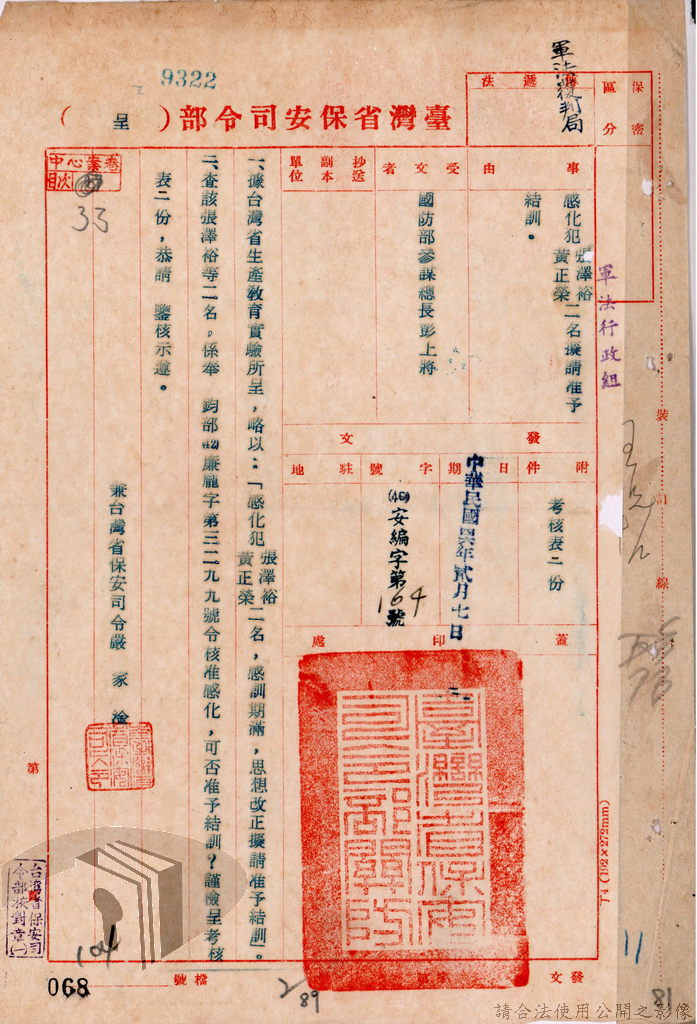 9322
軍法覆判局
臺灣省保安司令部（呈）
保密
區分
遞法
事由
感化犯張澤裕黃正榮二名擬請准予
結訓。
受文者
國防部參謀總長彭上將
抄送
副本
單位
軍法行政組
裝訂線
發文
附件
考核表二份
日期
中華民國四六年貳月七日
字號
(46)安編字第164號
駐地
蓋印處
臺灣省保安司令部關防
一、據台灣省生產教育實驗所呈，略以：「感化犯張澤裕黃正榮二名，感訓期滿，思想改正擬請准予結訓」。
二、查該張澤裕等二名。係奉 鈞部(42)廉龐字第三二。九九號令核准感化，可否准予結訓？謹檢呈考核
表二份，恭請 鑒核示遵。
兼台灣省保安司令嚴家淦
中心案卷
目次
33
第
台灣省保安司
令部校對章(一)
T4(192×272mm)
104
11
068
檔號
發文
2
89
81
請合法使用公開之影像